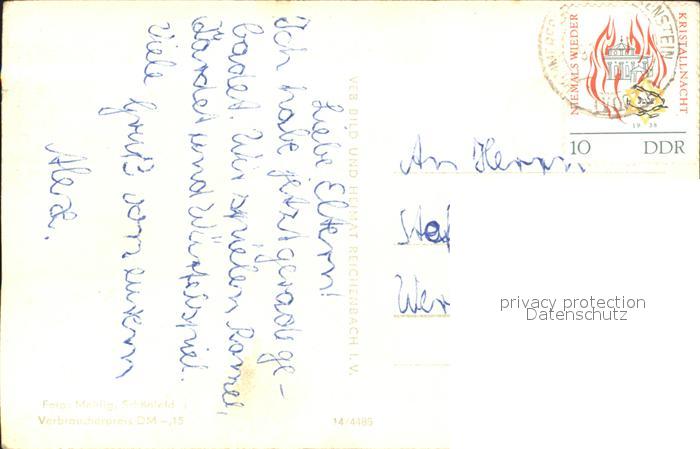 Liebe Eltern!
Ich habe jetzt gerade ge-
badet. Wir spielen Rommé,
und Würfelspiel.
Viele Grüße von eurem
Alex.
VEB BILD UND HEIMAT REICHENBACH I. V.
Foto: Schönfeld
Verbraucherpreis DM -,15
14/4485
NIEMALS WIEDER
KRISTALLNACHT
1938
10 DDR
An Herrn
Stef
Wer
privacy protection
Datenschutz